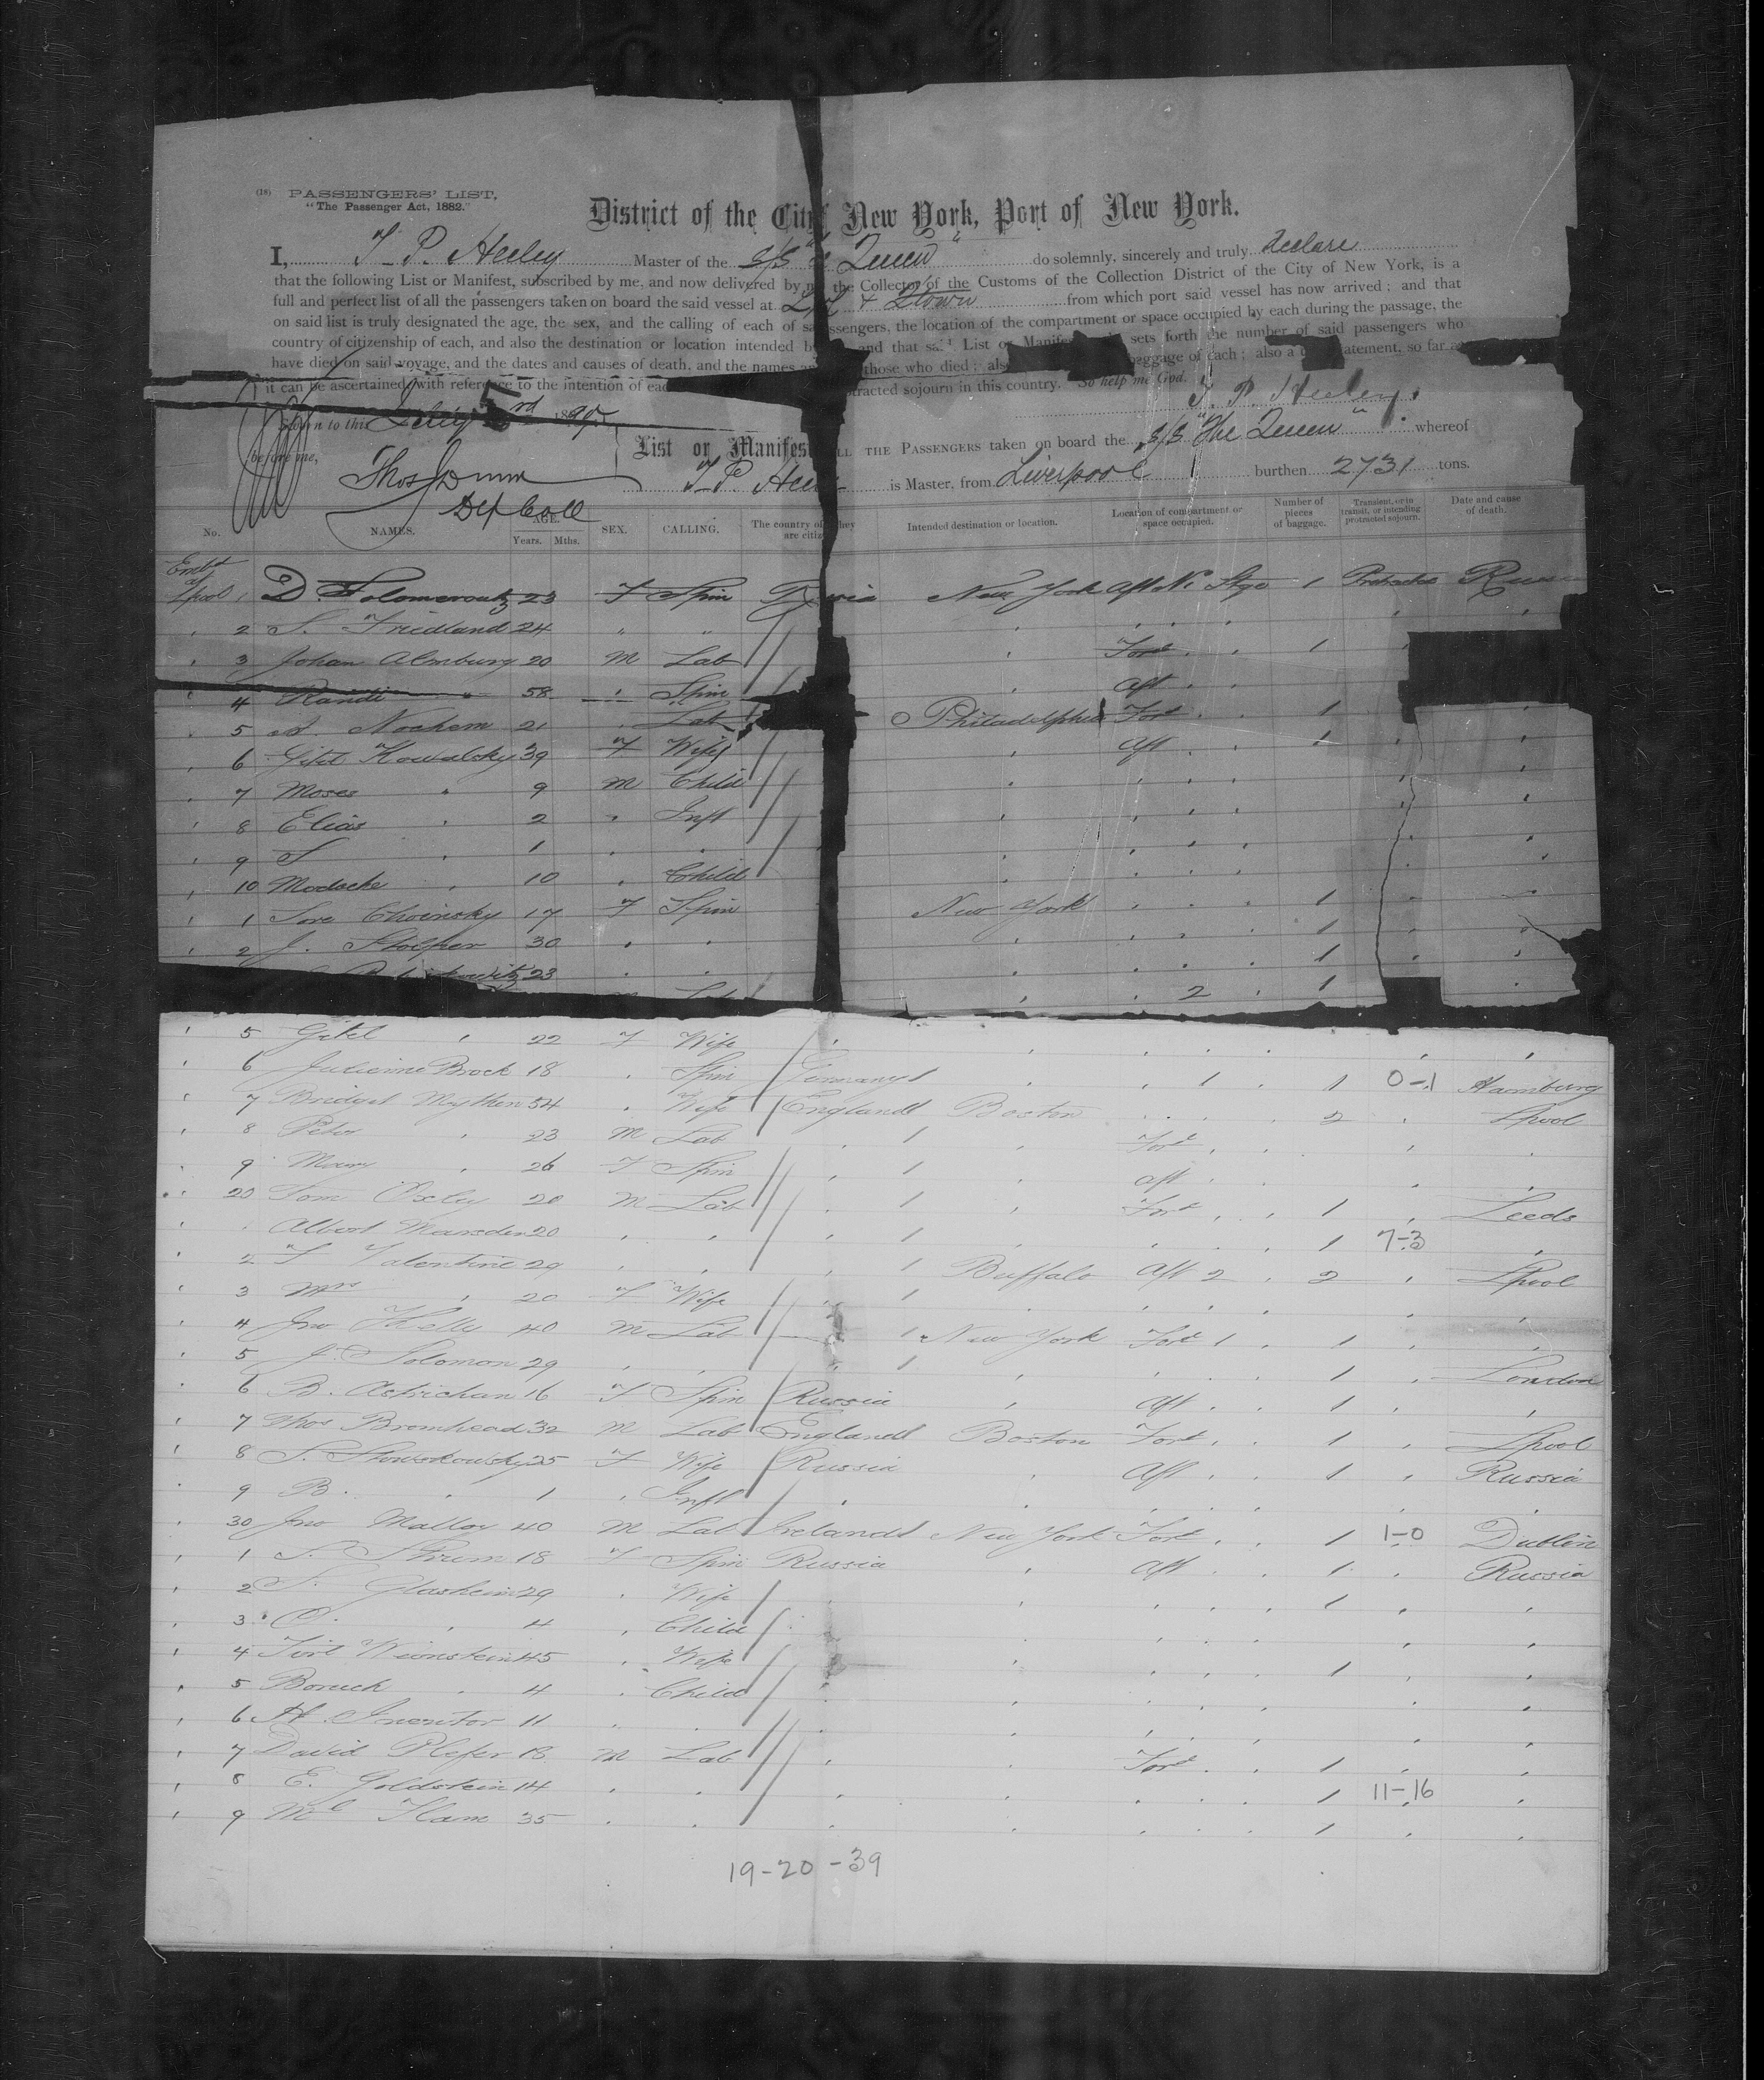 (18) PASSENGERS' LIST,
"The Passenger Act, 1882."
District of the City New York, Port of New York.
I, T. P. Heeley Master of the S/S Queen" do solemnly, sincerely and truly declare
that the following List or Manifest, subscribed by me, and now delivered by me the Collector of the Customs of the Collection District of the City of New York, is a
full and perfect list of all the passengers taken on board the said vessel at L'pl & Qtown from which port said vessel has now arrived; and that
on said list is truly designated the age, the sex, and the calling of each of sa ssengers, the location of the compartment or space occupied by each during the passage, the
country of citizenship of each, and also the destination or location intended b and that said List or Manifes sets forth the number of said passengers who
have died on said voyage, and the dates and causes of death, and the names a those who died; als baggage of each; also a t atement, so far as
it can be ascertained with reference to the intention of eac tracted sojourn in this country. So help me God.
T. P. Heeley.
Sworn to this rd 18
before me,
Thos Dunn
Dep Coll
List or Manifest LL THE PASSENGERS taken on board the S/S "The Queen" whereof
T. P. Heeley is Master, from Liverpool burthen 2731 tons.
No. NAMES. AGE. Years. Mths. SEX. CALLING. The country of hey are citiz Intended destination or location. Location of compartment or space occupied. Number of pieces of baggage. Transient, or in transit, or intending protracted sojourn. Date and cause of death.
Embt at Lpool 1 D. 23 F Spin New York Aft N. Stge 1 Protracted Russia
2 S. Friedland 24 " "
3 Johan Almburg 20 M Lab Ford 1
4 Randi " 58 Spin Aft
5 Nochem 21 Lab Philadelphia Ford 1
6 Gitel Kowalsky 39 F Wife Aft 1
7 Moses " 9 M Child
8 Elias " 2 " Inft
9 S " 1
10 Modsche " 10 Child
1 Sore Choinsky 17 F Spin New York 1
2 J. Stolper 30 1
23 1
2 1
5 Gitel " 22 F Wife
6 Julienne Brock 18 Spin Germany 1 1 1 0-1 Hamburg
7 Bridget Mythen 54 Wife England 1 Boston 2 Lpool
8 Peter " 23 M Lab 1 Ford
9 Mary " 26 F Spin 1 Aft
20 Tom Oxley 20 M Lab 1 Ford 1 Leeds
Albert Marsden 20 1 1 7-3
2 T Valentine 29 1 Buffalo Aft 2 2 Lpool
3 Mrs " 20 F Wife 1
4 Jno Kelly 40 M Lab 1 New York Ford 1 1
5 J. Solomon 29 1 1 London
6 B. Astrichan 16 F Spin Russia Aft 1
7 Thos Bromhead 32 M Lab England 1 Boston Ford 1 Lpool
8 S. 25 F Wife Russia Aft 1 Russia
9 B. " 1 Inft
30 Jno Malloy 40 M Lab Ireland 1 New York Ford 1 1-0 Dublin
1 S. 18 F Spin Russia Aft 1 Russia
2 S. 29 Wife 1
3 O. " 4 Child
4 45 Wife 1
5 Boruch " 4 Child
6 H. 11
7 David Plefer 18 M Lab Ford 1
8 E. Goldstein 14 1 11-16
9 Ml 35 1
19-20-39